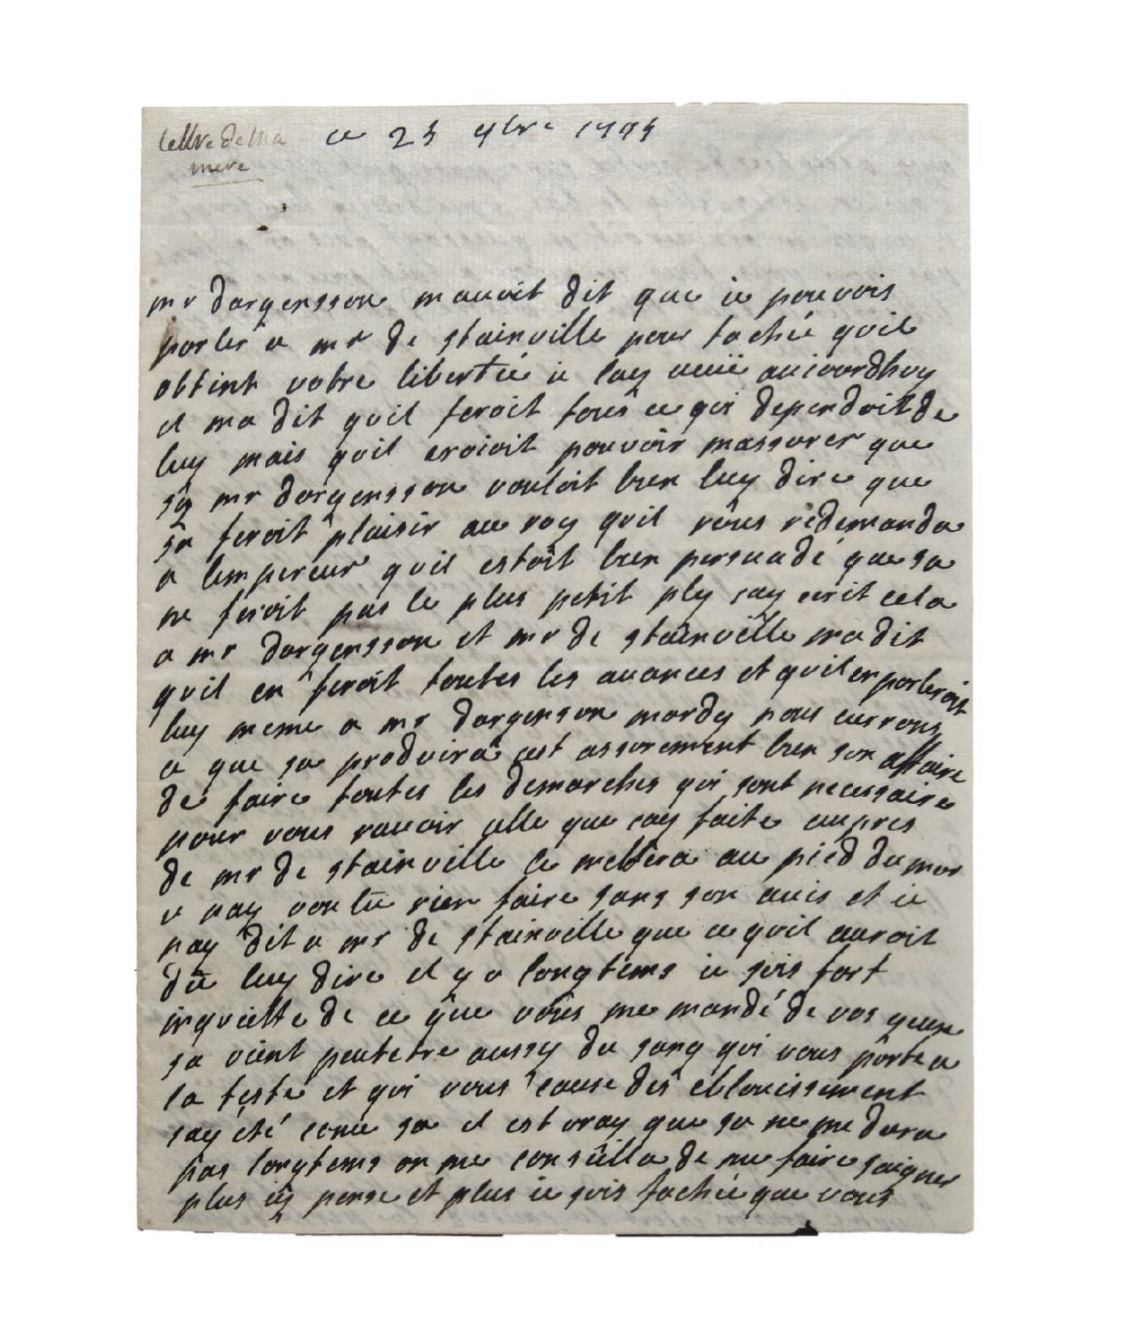 lettre de ma
mere
ce 25 9bre 1745
mr dargensson mauoit dit que ie pouvois
parler a mr de stainville pour taché quil
obtint vostre libertée ie lay veüe auiourdhuy
il ma dit quil feroit tous ce qui dependoit de
luy mais quil croioit pouvoir massurer que
sy mr dargensson vouloit bien luy dire que
sa feroit plaisir au roy quil vous redemanda
a lempereur quil estoit bien persuadé que sa
ne feroit pas le plus petit ply iay ecrit cela
a mr dargensson et mr de stainville ma dit
quil en feroit toutes les auances et quil en parleroit
luy meme a mr dargenson mardy nous verrons
ce que sa produira cest assurement bien son affaire
de faire toutes les demarches qui sont necessaire
pour vous ravoir celle que iay faite aupres
de mr de stainville le mettera au pied du mur
ie nay voulu rien faire sans son avis et ie
nay dit a mr de stainville que ce quil auroit
du luy dire il y a longtems ie suis fort
inquiette de ce que vous me mandé de vos yeux
sa vient peutetre aussy du sang qui vous porte a
la teste et qui vous cause des eblouissement
iay eté come sa il est vray que sa ne me dura
pas longtems on me conseilla de me faire saigner
plus iy pense et plus ie suis fachée que vous